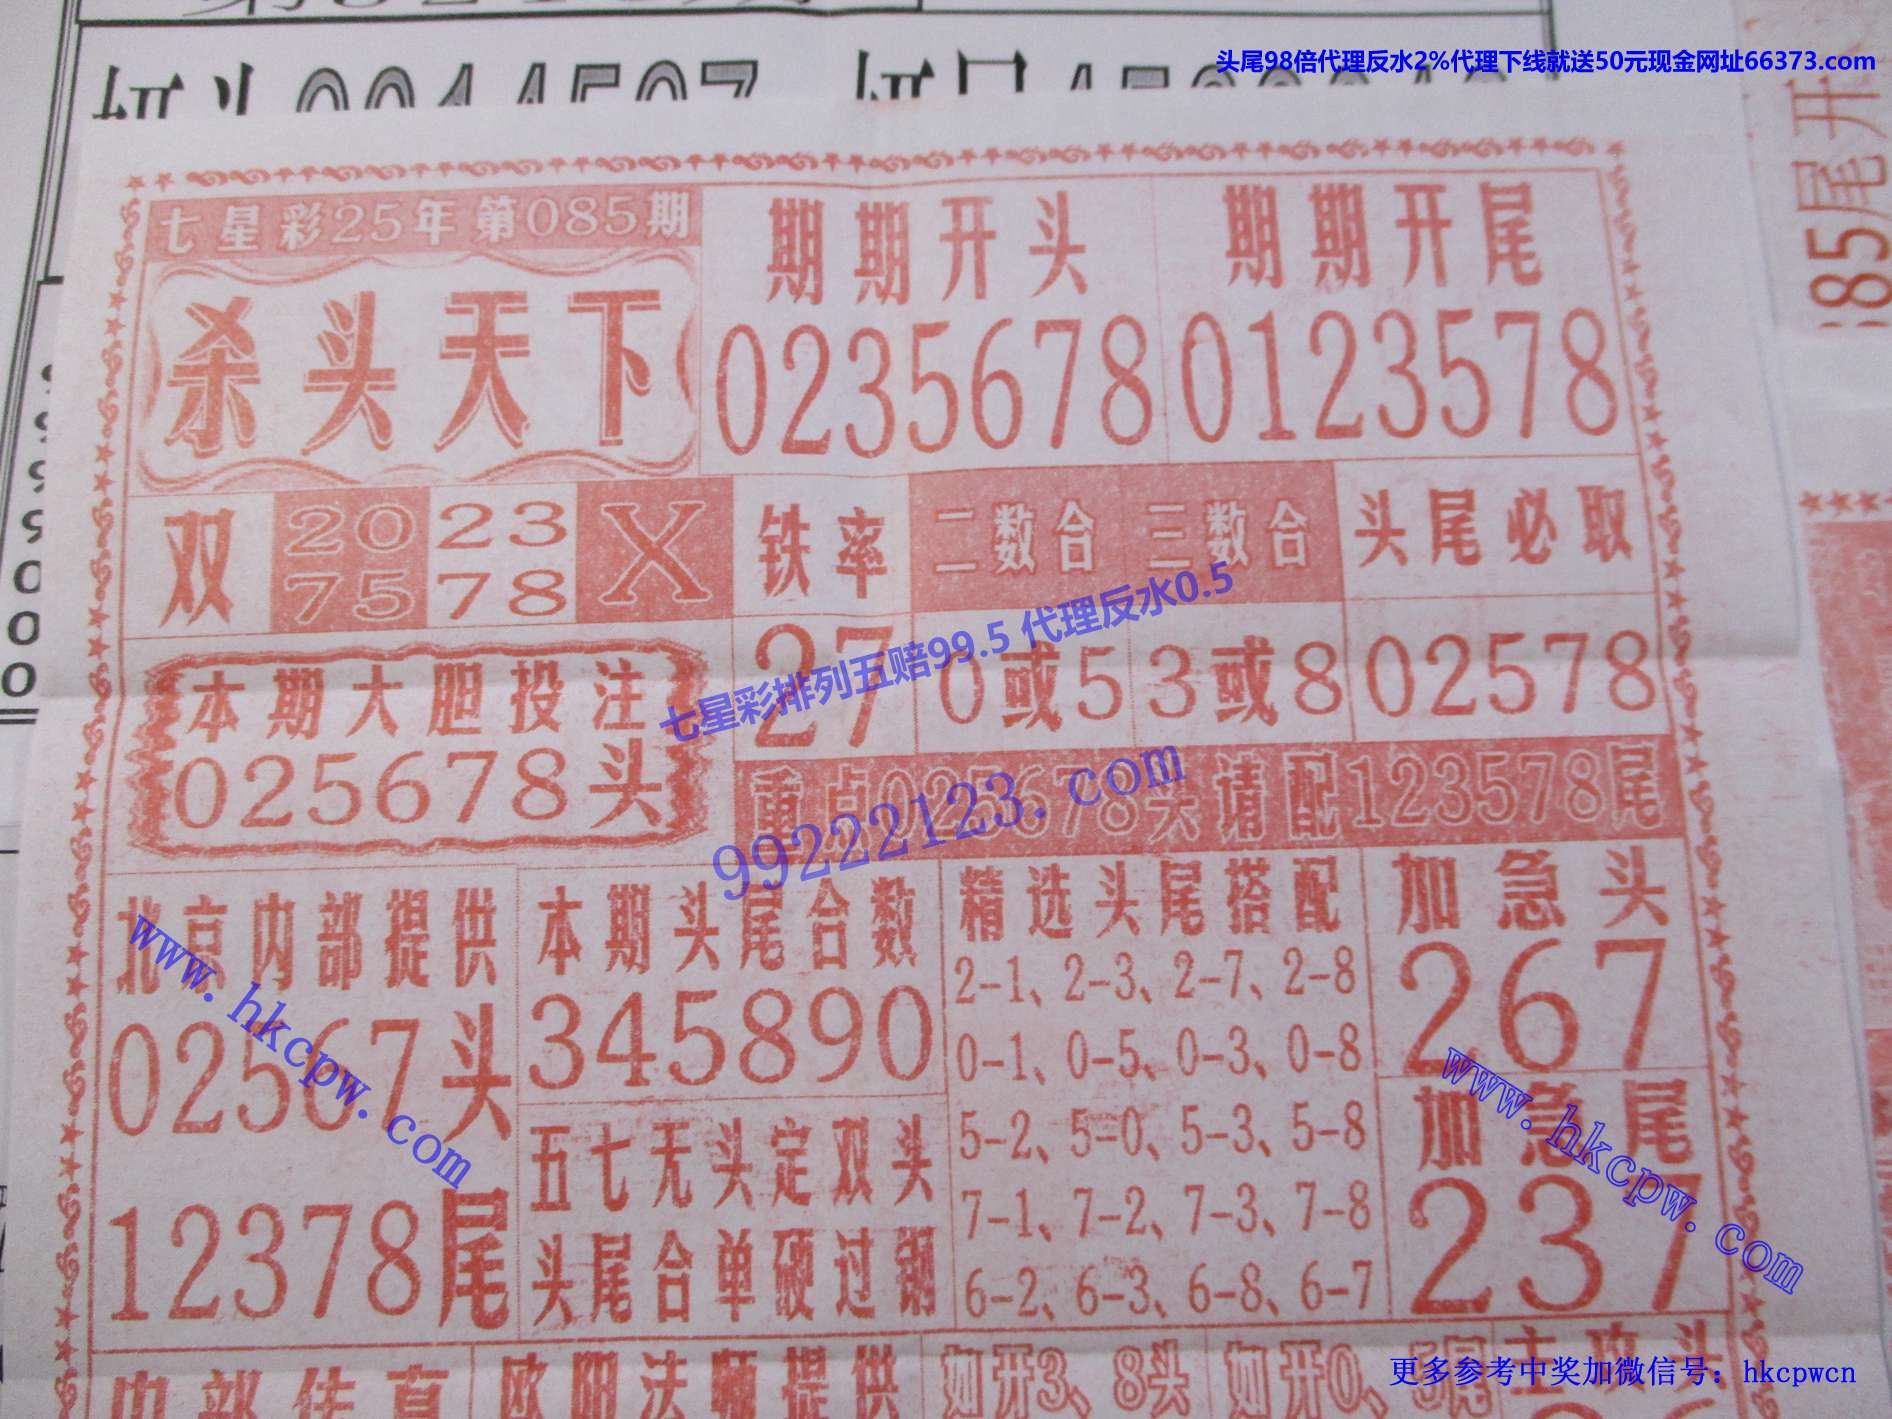 头尾98倍代理反水2%代理下线就送50元现金网址66373.com
85尾开
七星彩25年第085期
杀头天下
期期开头
0235678
期期开尾
0123578
双
20 23
75 78
X
铁率
27
二数合
0或5
三数合
3或8
头尾必取
02578
七星彩排列五赔99.5 代理反水0.5
99222123.com
本期大胆投注
025678头
重点025678头请配123578尾
北京内部提供
02567头
12378尾
www.hkcpw.com
本期头尾合数
345890
五七无头定双头
头尾合单硬过钢
精选头尾搭配
2-1、2-3、2-7、2-8
0-1、0-5、0-3、0-8
5-2、5-0、5-3、5-8
7-1、7-2、7-3、7-8
6-2、6-3、6-8、6-7
加急头
267
加急尾
237
www.hkcpw.com
内部传真
欧阳法师提供
如开3、8头
如开0、5尾
主攻头
更多参考中奖加微信号：hkcpwcn